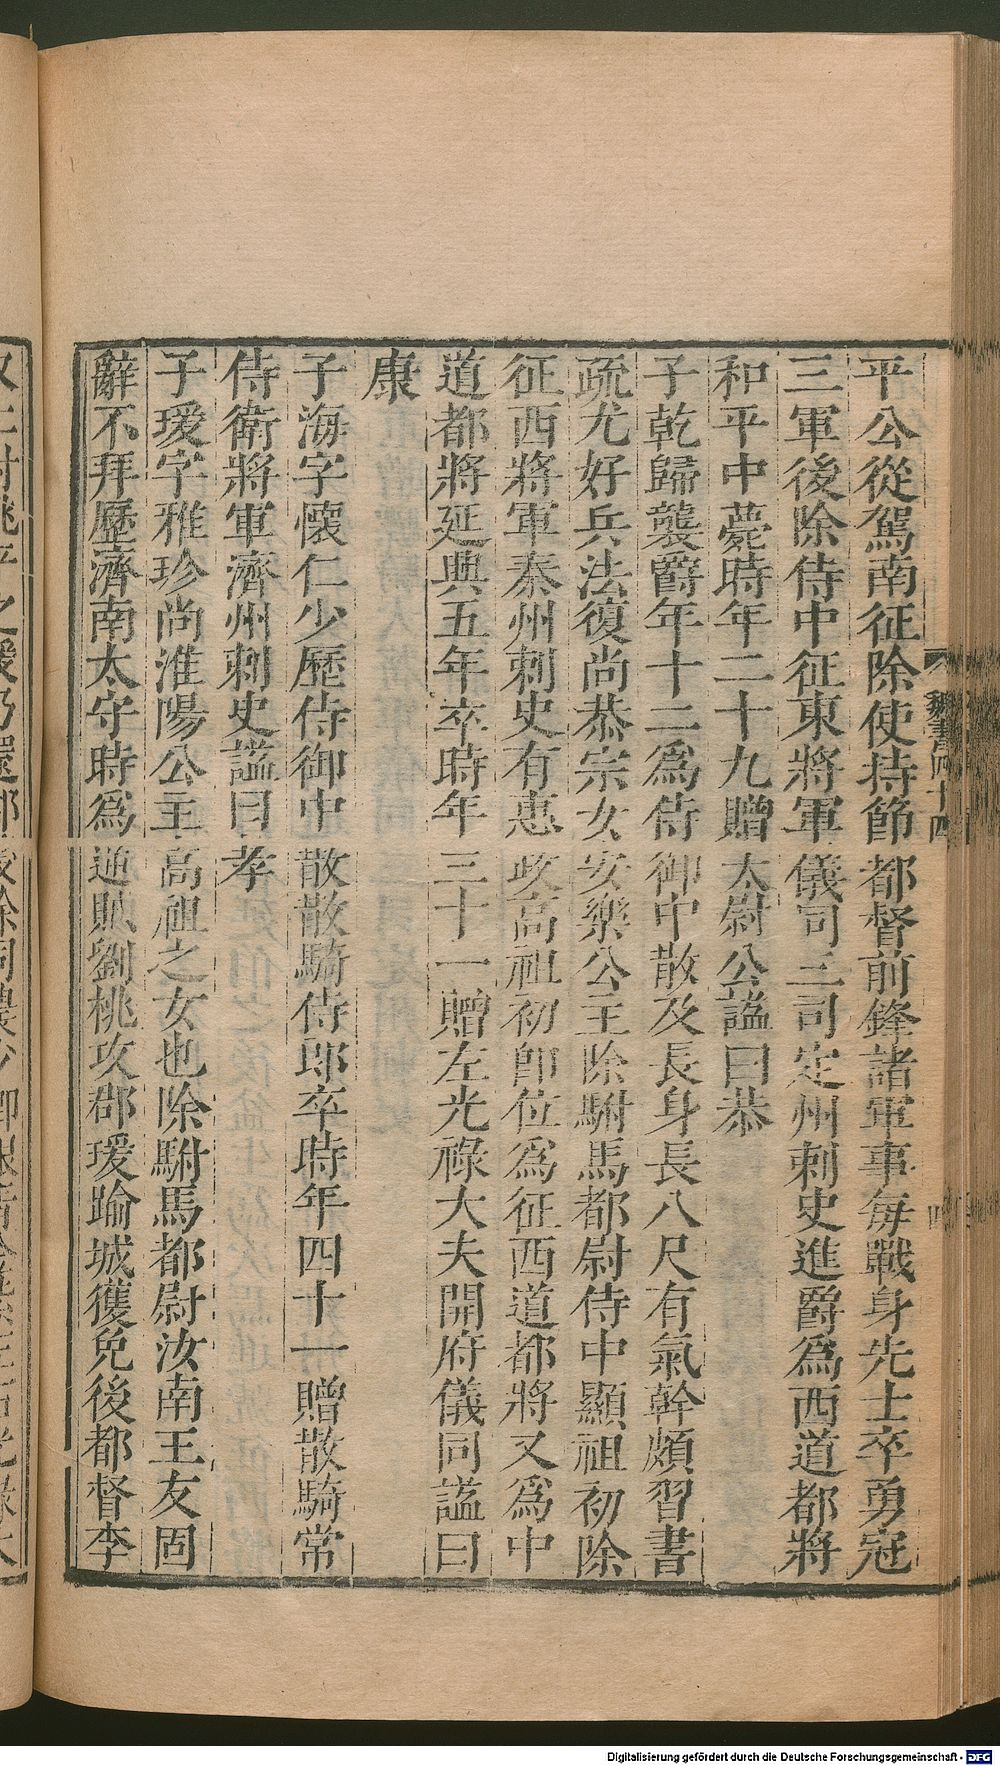 平公從駕南征除使持節都督前鋒諸軍事每戰身先士卒勇冠
三軍後除侍中征東將軍儀司三司定州刺史進爵爲西道都將
和平中薨時年二十九贈太尉公謚曰恭
子乾歸襲爵年十二爲侍御中散及長身長八尺有氣幹頗習書
疏尤好兵法復尚恭宗女安樂公主除駙馬都尉侍中顯祖初除
征西將軍秦州刺史有惠政高祖初卽位爲征西道都將又爲中
道都將延興五年卒時年三十一贈左光祿大夫開府儀同謚曰
康
子海字懷仁少歷侍御中散散騎侍郎卒時年四十一贈散騎常
侍衛將軍濟州刺史謚曰孝
子瑗字雅珍尚淮陽公主高祖之女也除駙馬都尉汝南王友固
辭不拜歷濟南太守時爲逋賊劉桃攻郡瑗踰城獲免後都督李
魏書四十四
四
Digitalisierung gefördert durch die Deutsche Forschungsgemeinschaft - DFG